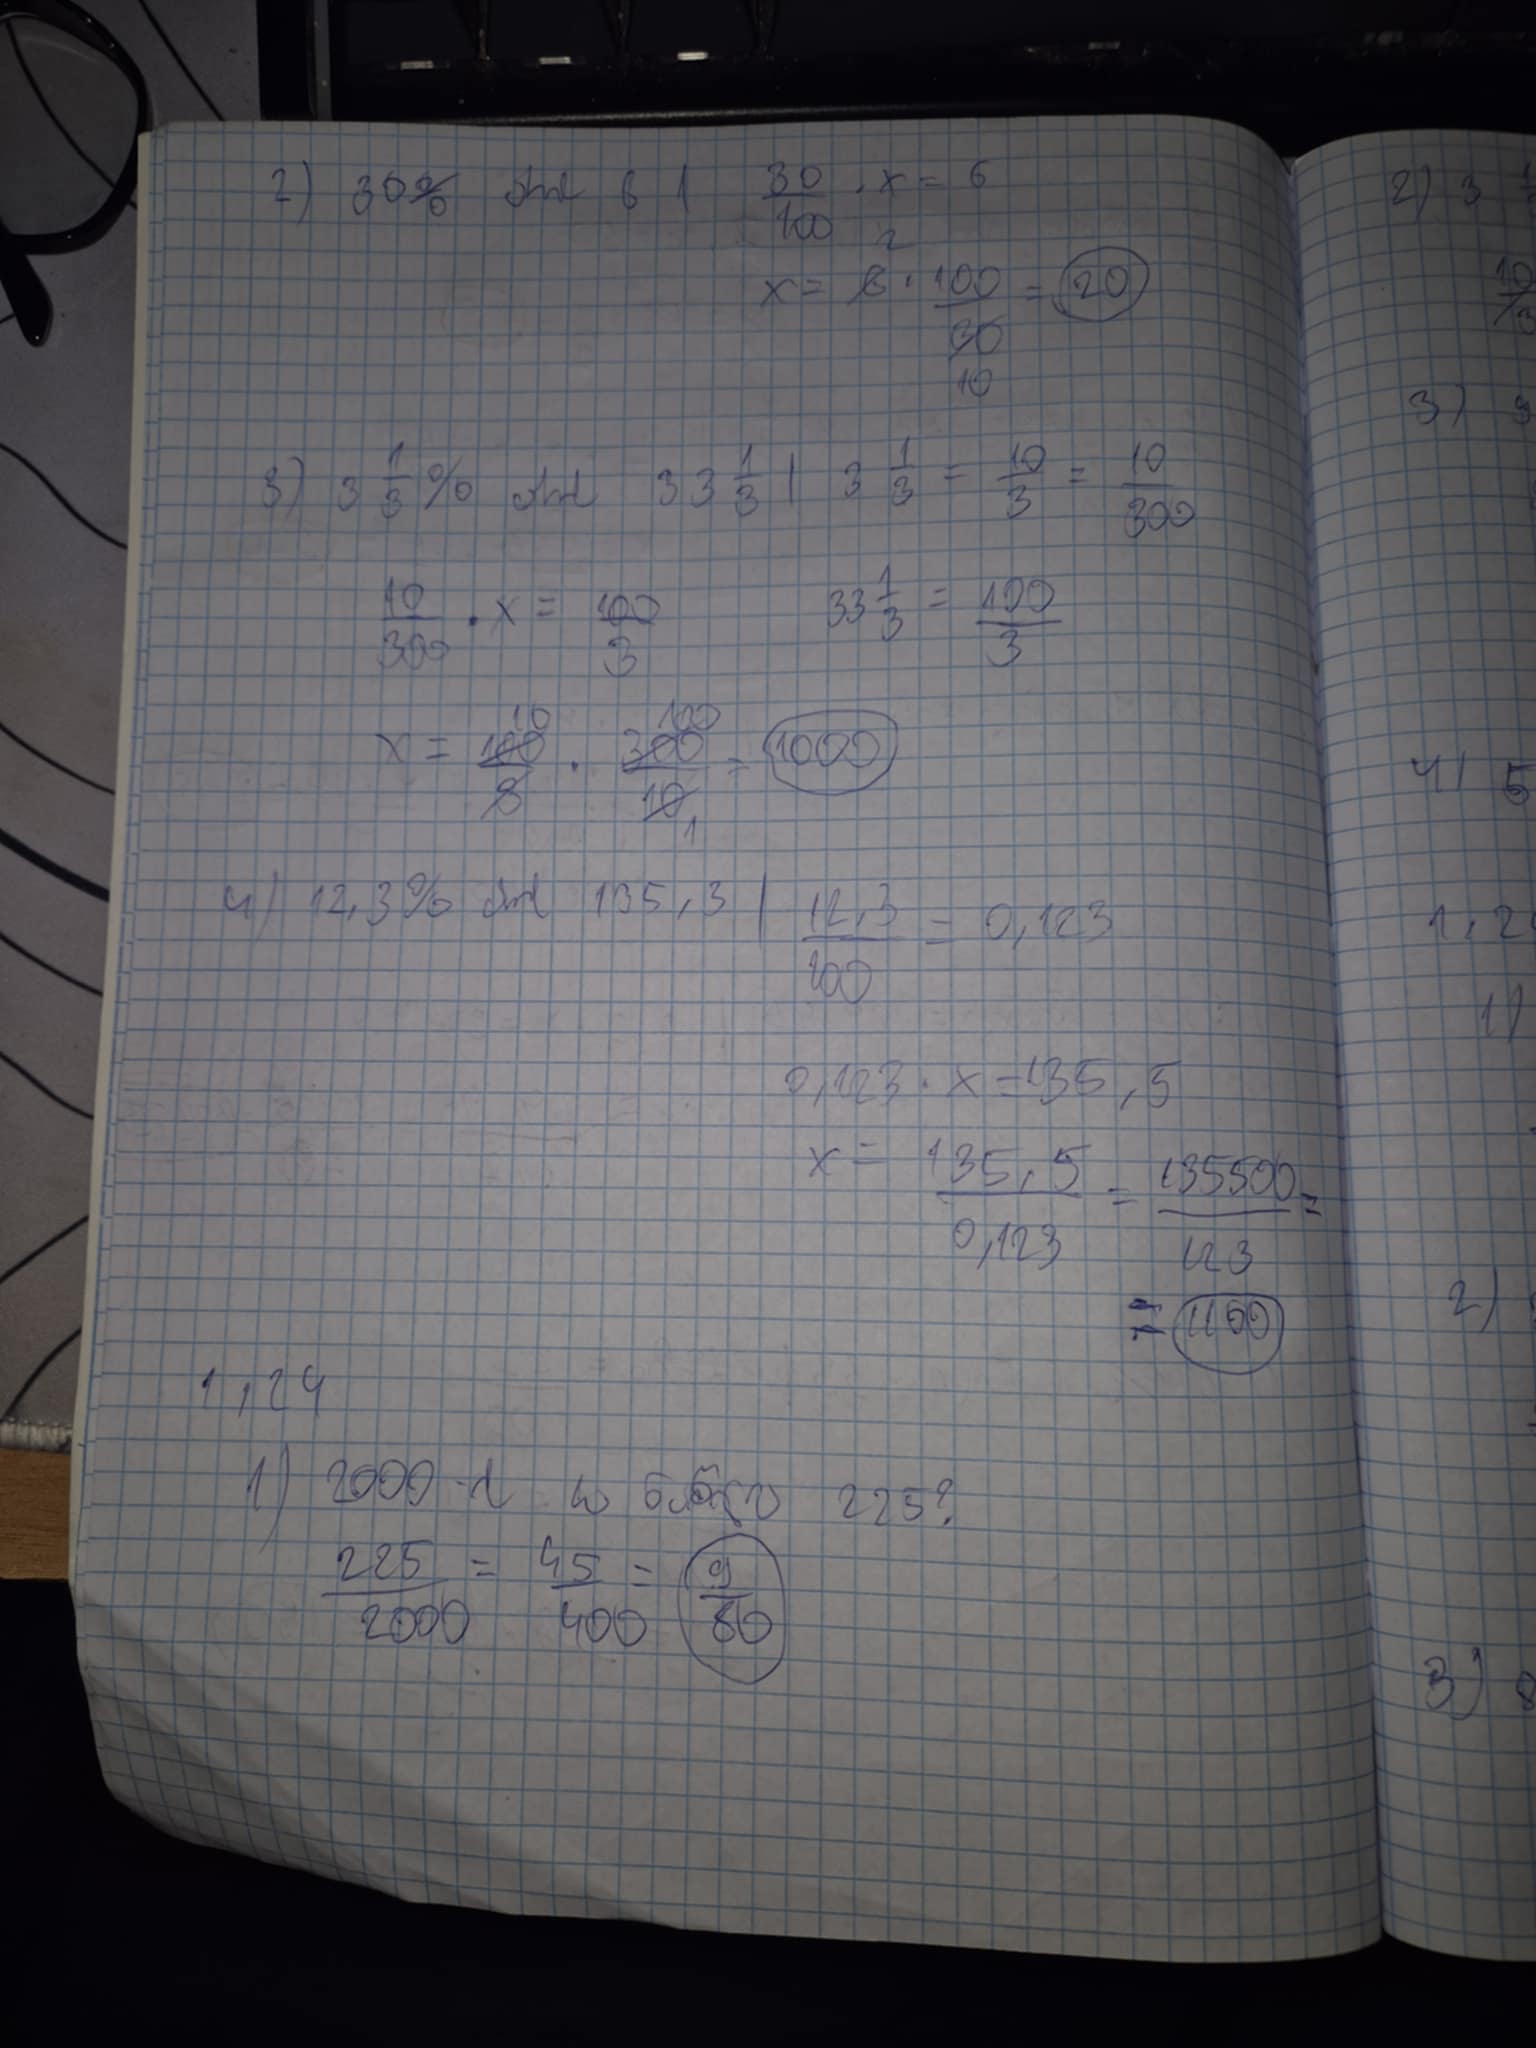 2) 30% 6 | 30/100 · x = 6
2
x = 6 · 100/30 = 20
10
3) 3 1/3 % 33 1/3 | 3 1/3 = 10/3 = 10/300
10/300 · x = 100/3 33 1/3 = 100/3
10 100
x = 100/3 · 300/10 = 1000
1
4) 12,3% 135,3 | 12,3/100 = 0,123
0,123 · x = 135,5
x = 135,5/0,123 = 135500/123 =
= 1100
1,24
1) 2000 225?
225/2000 = 45/400 = 9/80
2) 3
10/3
3)
4) 5
1,2
1)
2)
3)